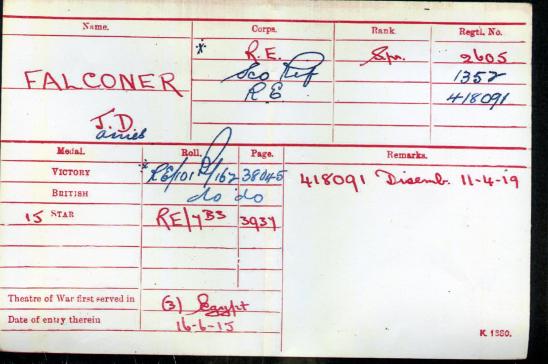 Name. Corps. Rank. Regtl. No.
* R.E. Spr. 2605
FALCONER Sco Rif 1352
R.E. 418091
J. D.
Medal. Roll. Page. Remarks.
VICTORY * RE/101 /162 38045 418091 Disemb. 11-4-19
BRITISH do do
15 STAR RE/7B3 3937
Theatre of War first served in (3) Egypt
Date of entry therein 16-6-15
K. 1380.